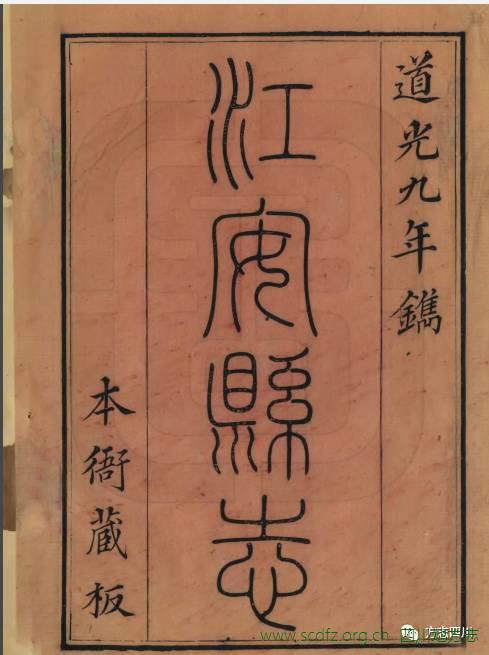 道光九年鐫
江安縣志
本衙藏板
www.scdfz.org.cn
方志四川